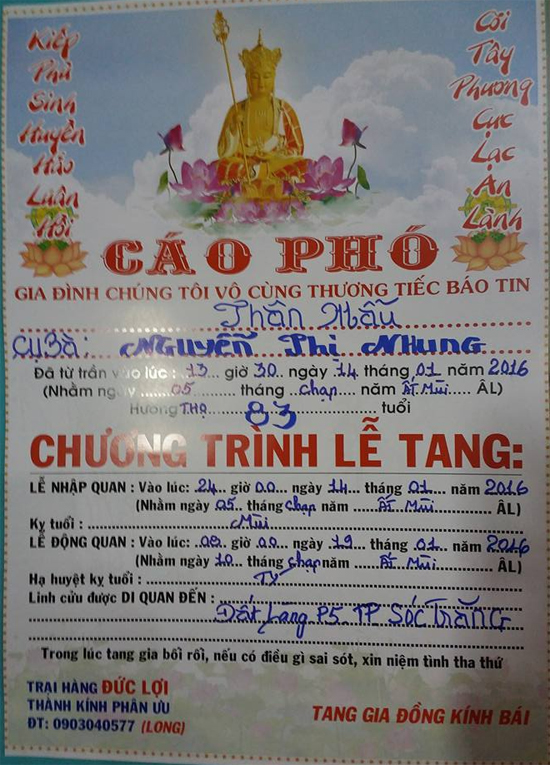 Kiếp
Phù
Sinh
Huyền
Hảo
Luân
Hồi
Cõi
Tây
Phương
Cực
Lạc
An
Lành
CÁO PHÓ
GIA ĐÌNH CHÚNG TÔI VÔ CÙNG THƯƠNG TIẾC BÁO TIN
Thân Mẫu
Cụ Bà: Nguyễn Thị Nhung
Đã từ trần vào lúc : 13 giờ 30 ngày 14 tháng 01 năm 2016
(Nhằm ngày 05 tháng chạp năm Ất Mùi ÂL)
Hương THỌ 83 tuổi
CHƯƠNG TRÌNH LỄ TANG:
LỄ NHẬP QUAN : Vào lúc: 24 giờ 00 ngày 14 tháng 01 năm 2016
(Nhằm ngày 05 tháng chạp năm Ất Mùi ÂL)
Kỵ tuổi : Mùi
LỄ ĐỘNG QUAN : Vào lúc: 08 giờ 00 ngày 19 tháng 01 năm 2016
(Nhằm ngày 10 tháng chạp năm Ất Mùi ÂL)
Hạ huyệt kỵ tuổi : Tý
Linh cửu được DI QUAN ĐẾN :
Đất Làng P5 TP SÓC TRĂNG
Trong lúc tang gia bối rối, nếu có điều gì sai sót, xin niệm tình tha thứ
TRẠI HÀNG ĐỨC LỢI
THÀNH KÍNH PHÂN ƯU
ĐT: 0903040577 (LONG)
TANG GIA ĐỒNG KÍNH BÁI